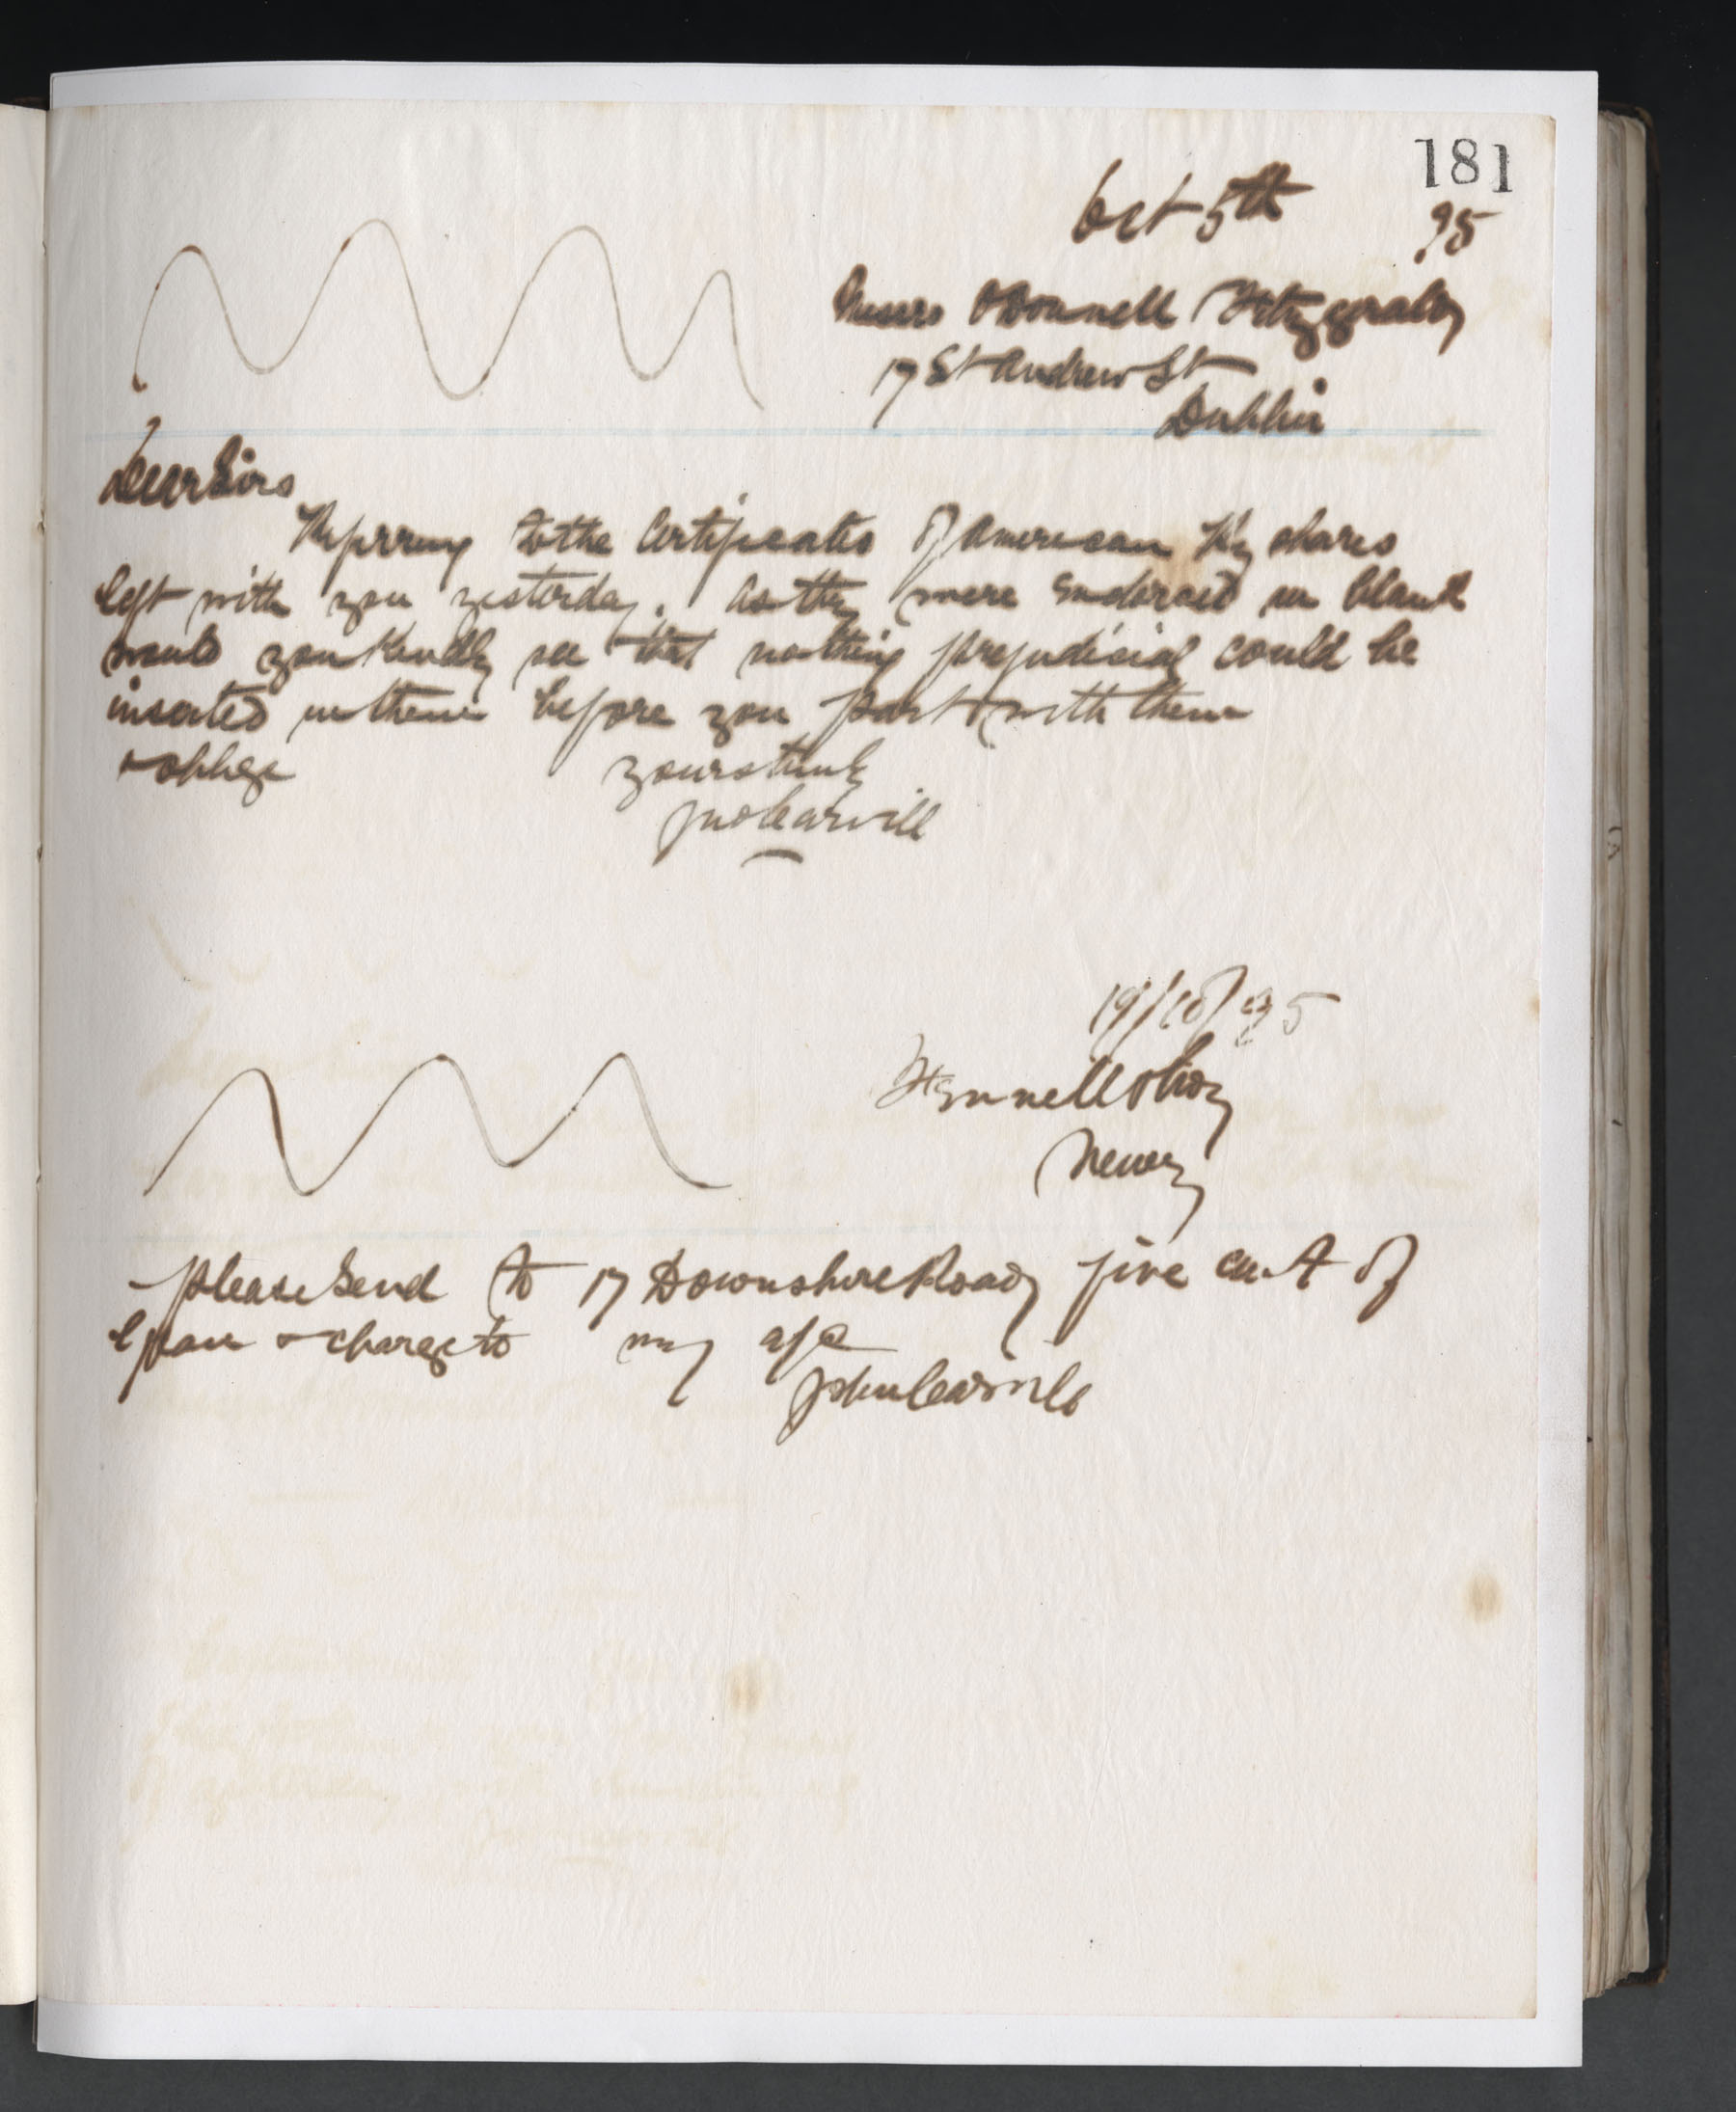 181
Oct 5th 95
Messrs O'Donnell Fitzgerald
17 St Andrew St
Dublin
Dear Sirs
Referring to the Certificates of American Ry shares
left with you yesterday. As they were endorsed in blank
would you kindly see that nothing prejudicial could be
inserted in them before you part with them
& oblige yours truly
Jno Carvill
19/10/95
Fennell &
Newry
Please Send to 17 Downshire Road five cwt of
& charge to my a/c
John Carvill